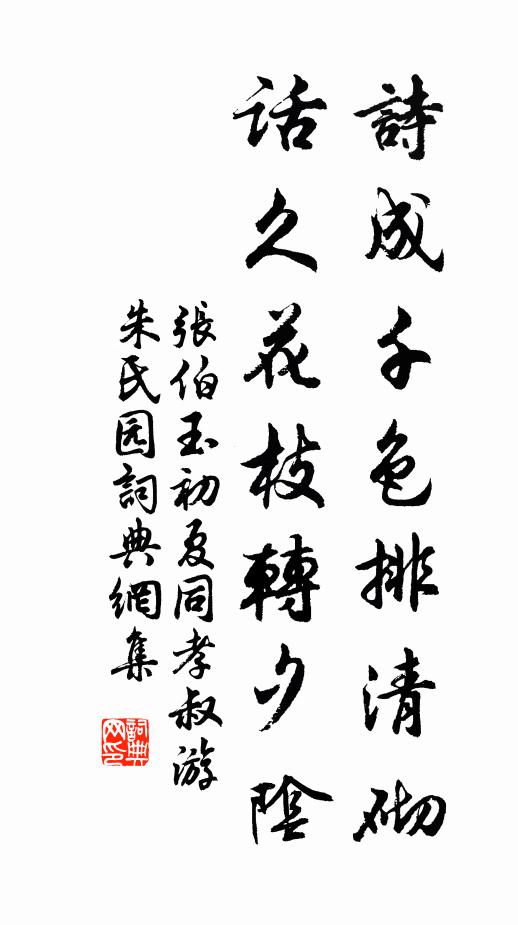 詩成千色排清砌
話久花枝轉夕陰
張伯玉初夏同孝叔游
朱氏园詞典網集
詞典
网印